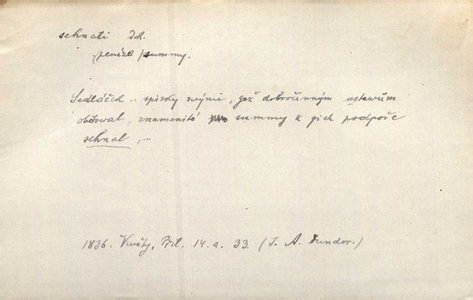 sehnati dk.
peníze / summy.
Sedláček.. spisky svými, gež dobročinným ustawům
obětowal, znamenité summy k gich podpoře
sehnal,...
1836. Květy, Příl. 14. a. 33. (J. A. Dundor.)